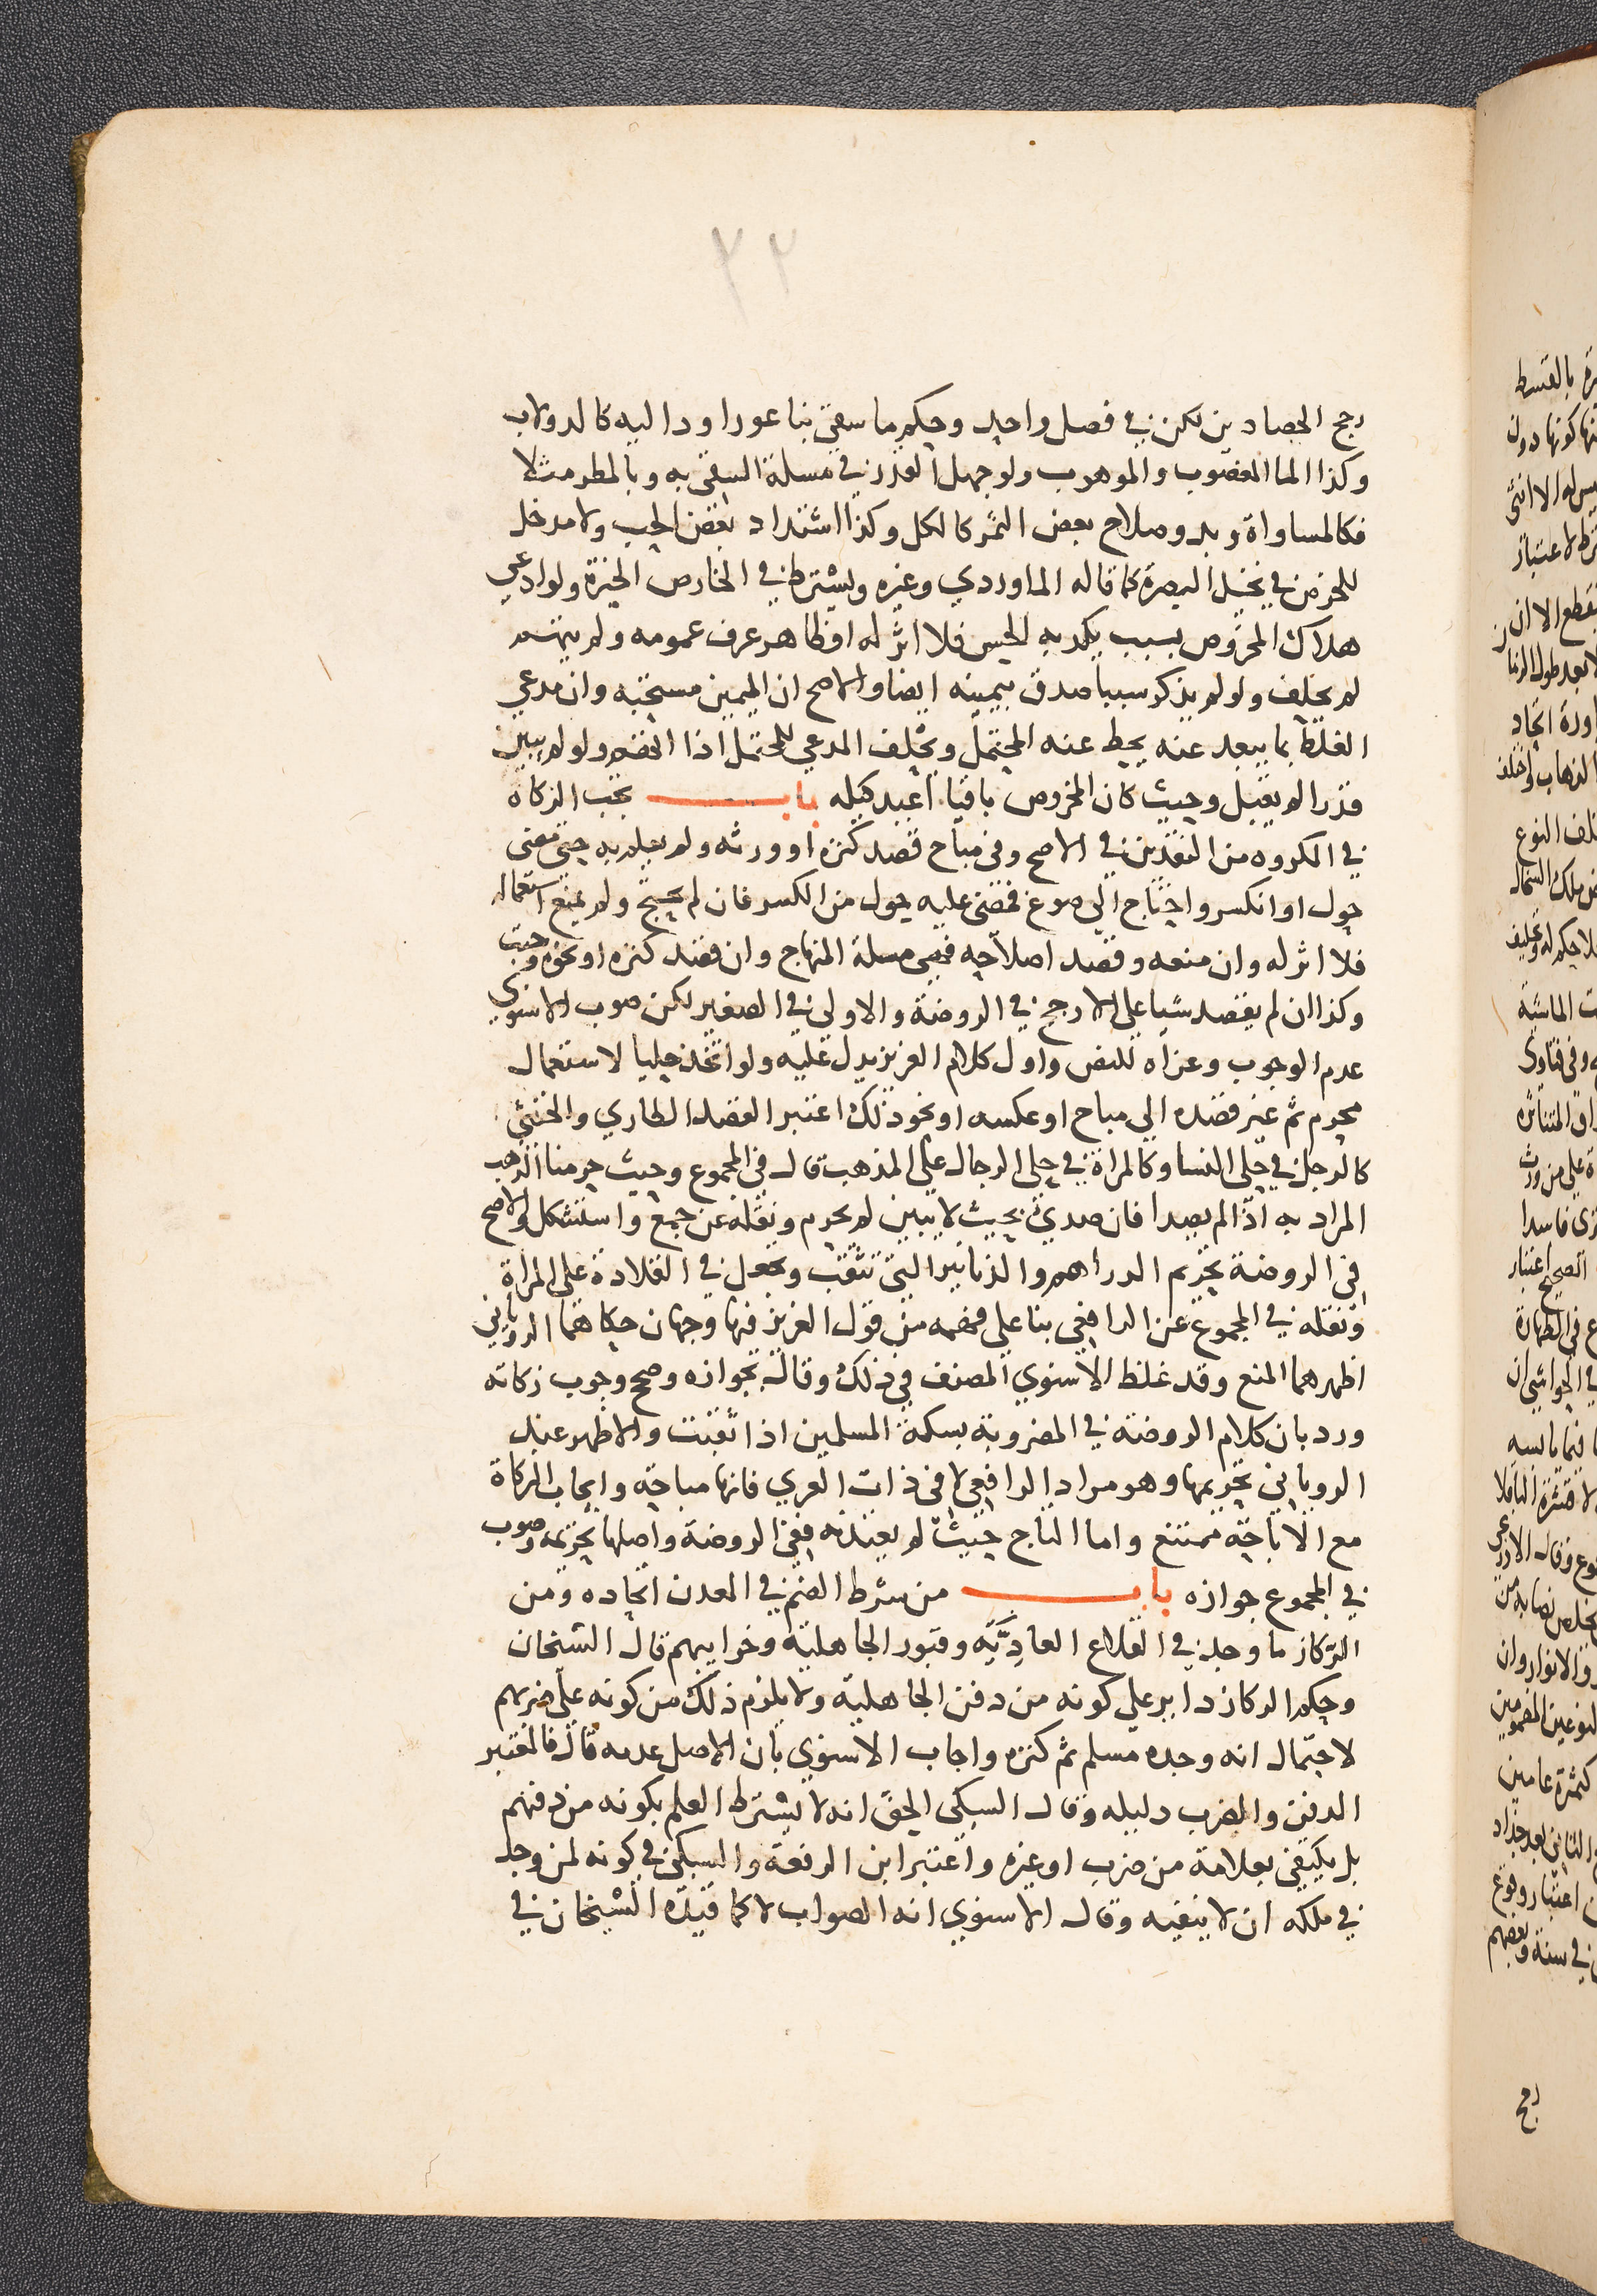 ٢٢
رجح الحصادين لكن في فصل واحد وحكم ما سقي بناعورا ودالية كالدولاب
وكذا الما المغصوب والموهوب ولو جهل القدر في مسلة السقي به وبالمطر مثلا
فكالمساواة وبدو صلاح بعض الثمر كالكل وكذا اشتداد بعض الحب ولا مدخل
للخرص في نخل البصرة كما قاله الماوردي وغيره ويشترط في الخارص الخبرة ولو ادعي
هلاك المخروص بسبب يكذبه الحس فلا اثر له او ظاهر عرف عمومه ولم يتهم
لم يحلف ولو لم يذكر سببا صدق بيمينه ايضا والاصح ان اليمين مستحبة وان مدعي
الغلط بما يبعد عنه يحط عنه المحتمل ويحلف المدعي للمحتمل اذا اتهم ولو لم يبين
قدرا لم يقبل وحيث كان المخروص باقيا اعيد كيله باب تجب الزكاة
في المكروه من النقدين في الاصح وفي مباح قصد كنزه او ورثه ولم يعلم به حتي مضي
حول او انكسر واحتاج الي صوغ فمضي عليه حول من الكسر فان لم يحتج ولم يمنع استعماله
فلا اثر له وان منعه وقصد اصلاحه فهي مسلة المنهاج وان قصد كنزه او نحوه وجبت
وكذا ان لم يقصد شيا على الارجح في الروضة والاولى في الصغير لكن صوب الاسنوي
عدم الوجوب وعزاه للنص واول كلام العزيز يدل عليه ولو اتخذ حليا لاستعمال
محرم ثم غير قصده الي مباح او عكسه او نحو ذلك اعتبر القصد الطاري والخنثي
كالرجل في حلي النسا وكالمراة في حلي الرجال علي المذهب قال في المجموع وحيث حرمنا الذهب
المراد به اذا لم يصدا فان صدي بحيث لا يبين لم يحرم ونقله عن جمع واستشكل والاصح
في الروضة تحريم الدراهم والدنانير التي تثقب وتجعل في القلادة على المراة
ونقله في المجموع عن الرافعي بنا على فهمه من قول العزيز فيها وجهان حكاهما الروياني
اظهرهما المنع وقد غلط الاسنوي المصنف في ذلك وقال بجوازه وصحح وجوب زكاته
ورد بان كلام الروضة في المضروبة بسكة المسلمين اذا ثقبت والاظهر عند
الروياني تحريمها وهو مراد الرافعي لا في ذات العري فانها مباحة وايجاب الزكاة
مع الاباحة ممتنع واما التاج حيث لم يعتدنه ففي الروضة واصلها تحريمه وصوب
في المجموع جوازه باب من شرط الضم في المعدن اتحاده ومن
الركاز ما وجد في القلاع العاديَّة وقبور الجاهلية وخرابيهم قال الشيخان
وحكم الركاز داير علي كونه من دفن الجاهلية ولا يلزم ذلك من كونه على ضربهم
لاحتمال انه وجده مسلم ثم كنزه واجاب الاسنوي بان الاصل عدمه قال فالمعتبر
الدفن والضرب دليله وقال السبكي الحق انه لا يشترط العلم بكونه من دفنهم
بل يكتفي بعلامة من ضرب او غيره واعتبر ابن الرفعة والسبكي في كونه لمن وجد
في ملكه ان لا ينفيه وقال الاسنوي انه الصواب لا كما قيده الشيخان في